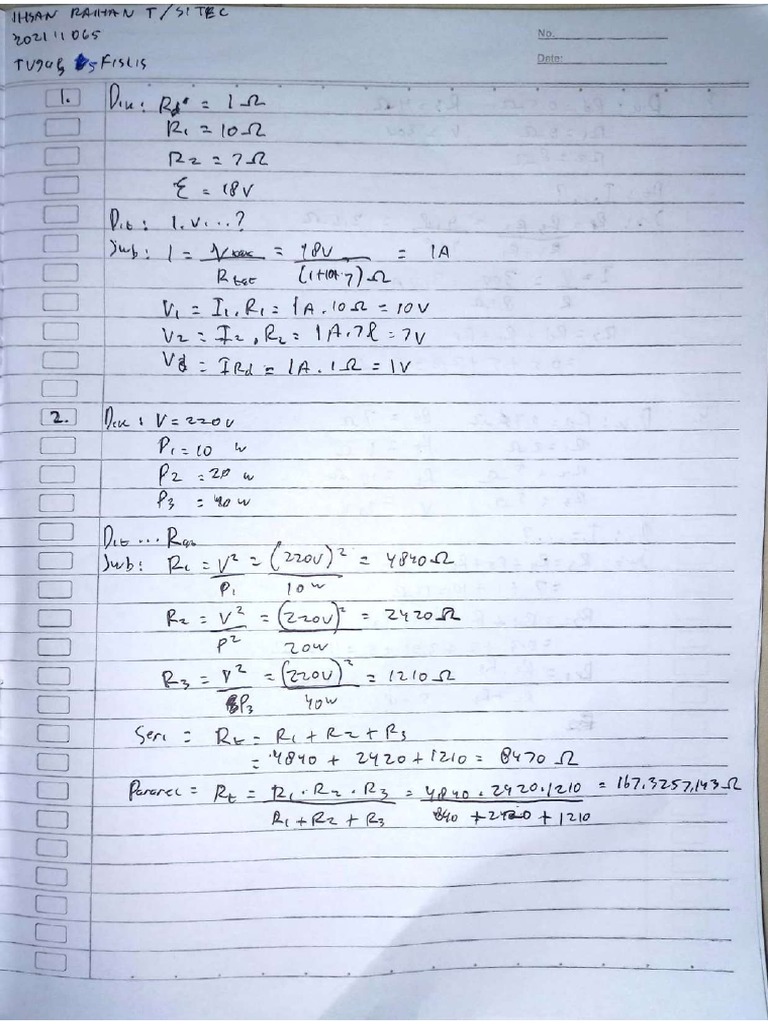 IHSAN RAIHAN T / SITEC
202111065
No.
Date:
Tugas 5 Fislis
1. Dik : Rd = 1 Ω
R1 = 10 Ω
R2 = 7 Ω
Ɛ = 18 V
Dit : I. V...?
Jwb : I = V / Rtot = 18V / (1+10+7) Ω = 1A
V1 = I1 . R1 = 1A . 10 Ω = 10V
V2 = I2 . R2 = 1A . 7Ω = 7V
Vd = I Rd = 1A . 1 Ω = 1V
2. Dik : V = 220 V
P1 = 10 w
P2 = 20 w
P3 = 40 w
Dit ...
Jwb : R1 = V² / P1 = (220V)² / 10w = 4840 Ω
R2 = V² / P2 = (220V)² / 20w = 2420 Ω
R3 = V² / P3 = (220V)² / 40w = 1210 Ω
Seri = Rt = R1 + R2 + R3
= 4840 + 2420 + 1210 = 8470 Ω
Pararel = Rt = R1 . R2 . R3 / R1 + R2 + R3 = 4840 . 2420 . 1210 / 840 + 2420 + 1210 = 167.3257,143 Ω